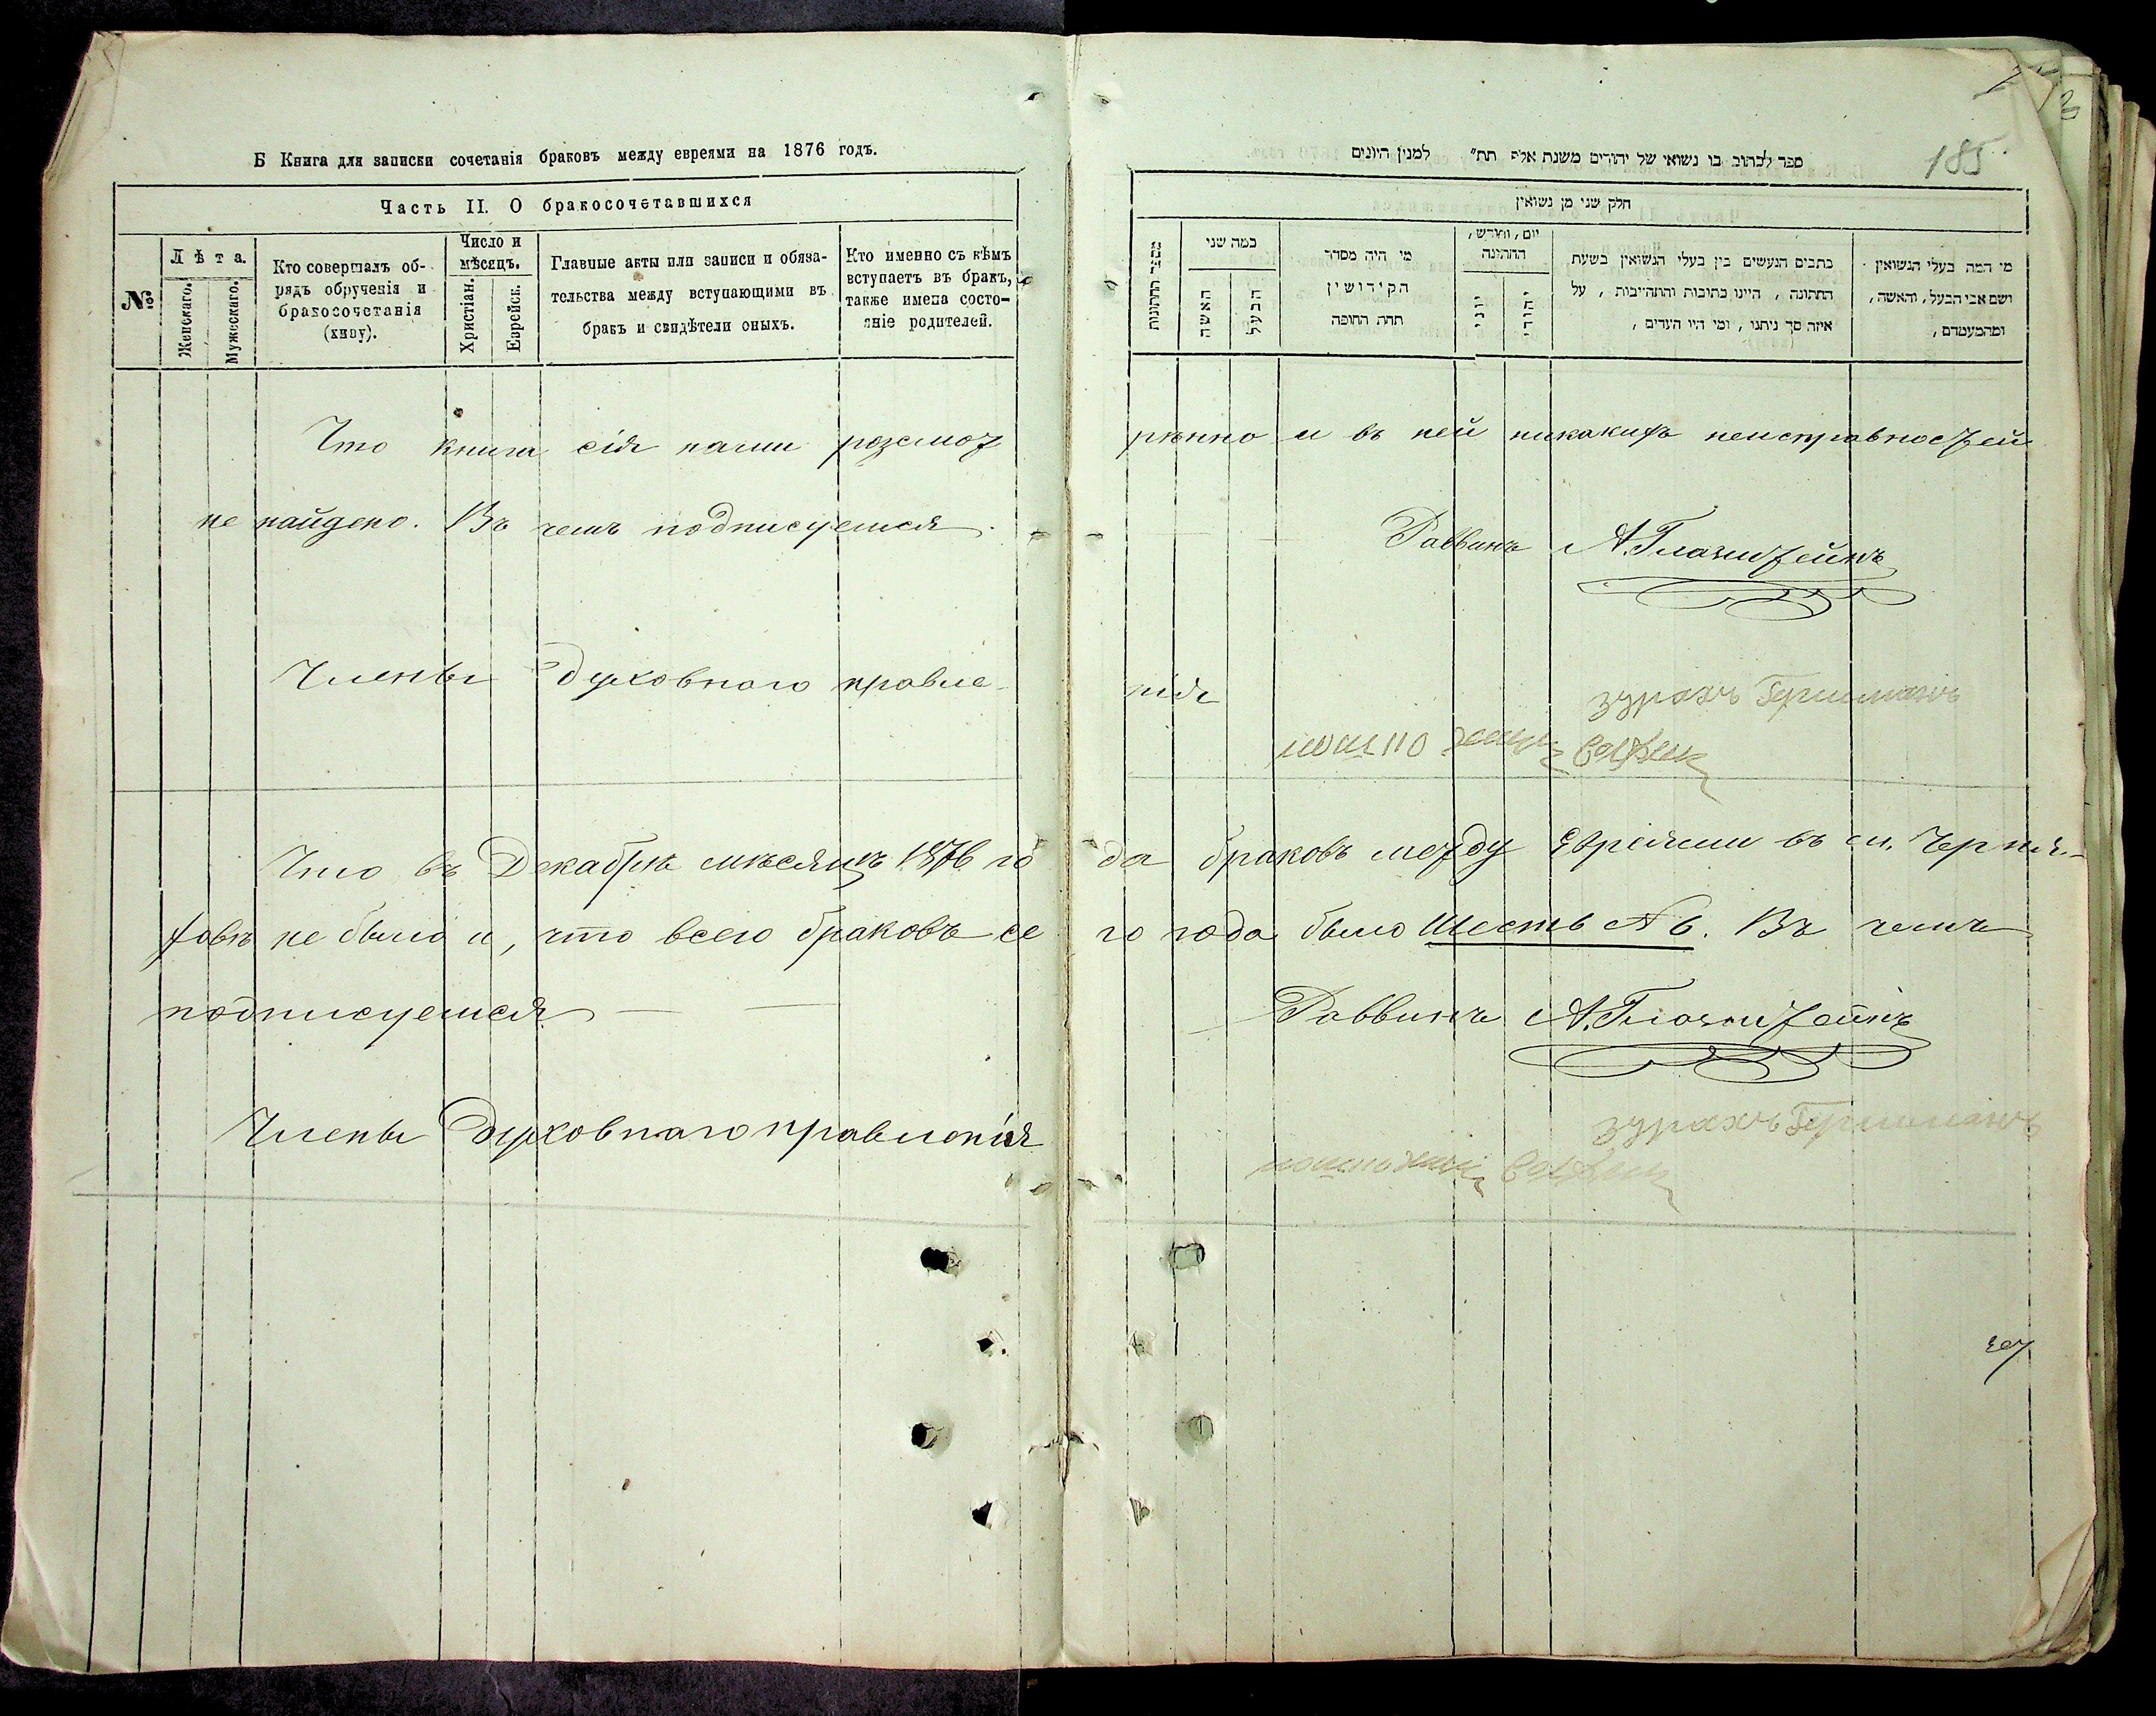 Б Книга для записки сочетанія браковъ между евреями на 1876 годъ.
Часть II. О бракосочетавшихся
№
Лѣта.
Женскаго.
Мужескаго.
Кто совершалъ об-
рядъ обрученія и
бракосочетанія
(хиву).
Число и
мѣсяцъ.
Христіан.
Еврейск.
Главные акты или записи и обяза-
тельства между вступающими въ
бракъ и свидѣтели оныхъ.
Кто именно съ кѣмъ
вступаетъ въ бракъ,
также имена состо-
яніе родителей.
ספר לכתוב בו נשואי של יהודים משנת אלף תת״ למנין היונים
185
חלק שני מן נשואין
מספר החתונות
כמה שני
האשה
הבעל
מי היה מסדר
הקידושין
תחת החופה
יום, וחודש,
החתונה
יוני
יהודי
כתבים הנעשים בין בעלי הנשואין בשעת
החתונה, היינו כתובות והתחייבות, על
איזה סך ניתנו, ומי היו העדים,
מי המה בעלי הנשואין
ושם אבי הבעל, והאשה,
ומהמעמדם,
Что книга сія нами розсмот рѣнно и въ ней никакихъ неисправностей
не найдено. Въ чемъ подписуемся. Раввинъ А. Глазштейнъ
Члены духовного правле нія зурахъ Гершманъ
Что въ Декабрѣ мѣсяцѣ 1876 го да браковъ между Евреями въ м. Черня-
ховѣ не было и, что всего браковъ се го года было Шесть № 6. Въ чемъ
подписуемся Раввинъ А. Глазштейнъ
Члены Духовнаго правленія зурахъ Гершманъ